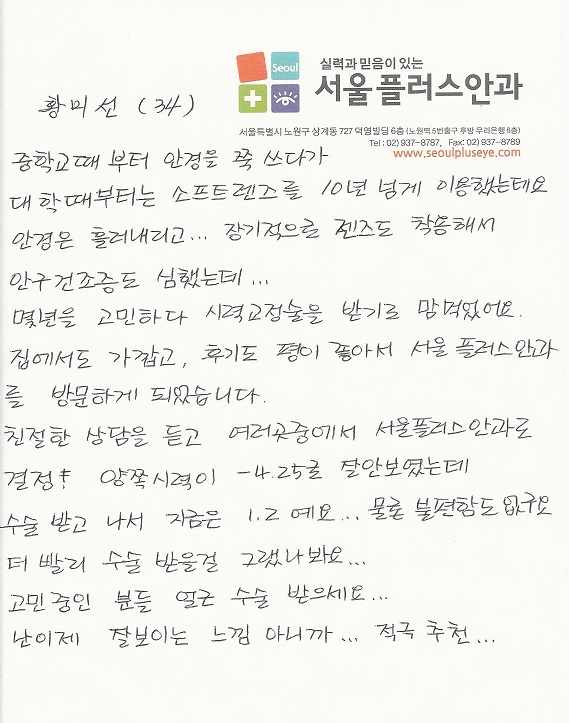 실력과 믿음이 있는
Seoul 서울플러스안과
황미선 (34)
서울특별시 노원구 상계동 727 덕영빌딩 6층 (노원역 5번출구 후방 우리은행 6층)
Tel : 02) 937-8787, Fax: 02) 937-8789
www.seoulpluseye.com
중학교때 부터 안경을 쭉 쓰다가
대학때부터는 소프트렌즈를 10년 넘게 이용했는데요
안경은 흘러내리고... 장기적으로 렌즈도 착용해서
안구건조증도 심했는데...
몇년을 고민하다 시력교정술을 받기로 맘먹었어요.
집에서도 가깝고, 후기도 평이 좋아서 서울 플러스안과
를 방문하게 되었습니다.
친절한 상담을 듣고 여러곳중에서 서울플러스안과로
결정! 양쪽시력이 -4.25로 잘안보였는데
수술 받고 나서 지금은 1.2 예요... 물론 불편함도 없구요
더 빨리 수술 받을걸 그랬나봐요...
고민중인 분들 얼른 수술 받으세요...
난이제 잘보이는 느낌 아니까... 적극 추천...